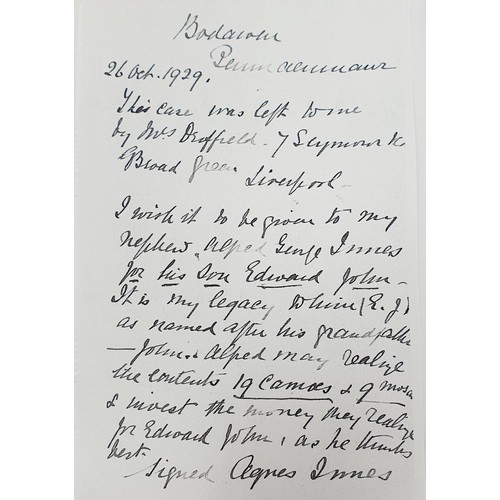 Bodawen
Penmaenmawr
26 Oct. 1929.
This case was left to me
by Mrs Duffield. 7 Seymour
Broad Green
Liverpool –
I wish it to be given to my
nephew Alfred George Innes
for his Son Edward John –
It is my legacy to him (E. J)
as named after his grandfather
– John. Alfred may realize
the contents 19 Cameos & 9 mosaic
& invest the money they realize
for Edward John, as he thinks
best.
Signed Agnes Innes